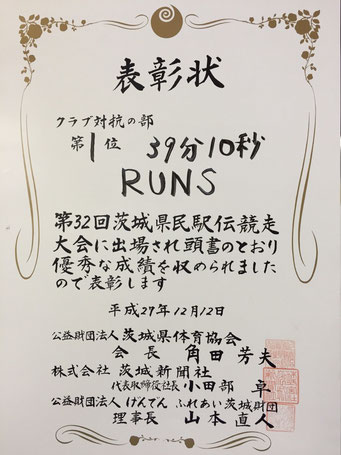 表彰状
クラブ対抗の部
第1位 39分10秒
RUNS
第32回茨城県民駅伝競走
大会に出場され頭書のとおり
優秀な成績を収められました
ので表彰します
平成27年12月12日
公益財団法人 茨城県体育協会
会長 角田芳夫
株式会社 茨城新聞社
代表取締役社長 小田部 卓
公益財団法人 げんでん ふれあい茨城財団
理事長 山本直人